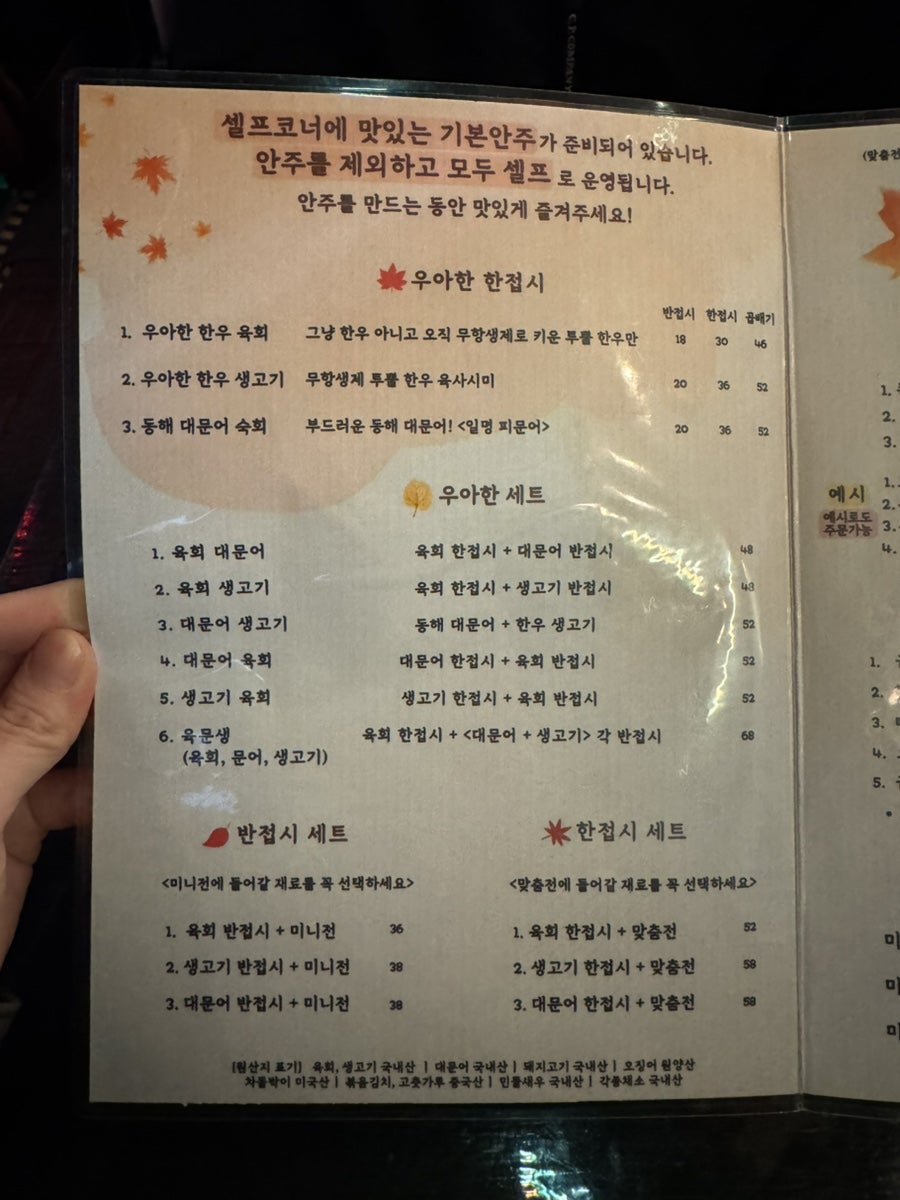 C.P. COMPANY
셀프코너에 맛있는 기본안주가 준비되어 있습니다.
안주를 제외하고 모두 셀프 로 운영됩니다.
안주를 만드는 동안 맛있게 즐겨주세요!
우아한 한접시
반접시 한접시 곱배기
1. 우아한 한우 육회 그냥 한우 아니고 오직 무항생제로 키운 투뿔 한우만 18 30 46
2. 우아한 한우 생고기 무항생제 투뿔 한우 육사시미 20 36 52
3. 동해 대문어 숙회 부드러운 동해 대문어! <일명 피문어> 20 36 52
우아한 세트
1. 육회 대문어 육회 한접시 + 대문어 반접시 48
2. 육회 생고기 육회 한접시 + 생고기 반접시 48
3. 대문어 생고기 동해 대문어 + 한우 생고기 52
4. 대문어 육회 대문어 한접시 + 육회 반접시 52
5. 생고기 육회 생고기 한접시 + 육회 반접시 52
6. 육문생 육회 한접시 + <대문어 + 생고기> 각 반접시 68
(육회, 문어, 생고기)
반접시 세트
<미니전에 들어갈 재료를 꼭 선택하세요>
1. 육회 반접시 + 미니전 36
2. 생고기 반접시 + 미니전 38
3. 대문어 반접시 + 미니전 38
한접시 세트
<맞춤전에 들어갈 재료를 꼭 선택하세요>
1. 육회 한접시 + 맞춤전 52
2. 생고기 한접시 + 맞춤전 58
3. 대문어 한접시 + 맞춤전 58
[원산지 표기] 육회, 생고기 국내산 | 대문어 국내산 | 돼지고기 국내산 | 오징어 원양산
차돌박이 미국산 | 볶음김치, 고춧가루 중국산 | 민물새우 국내산 | 각종채소 국내산
(맞춤전
1.
2.
3.
예시
예시로도
주문가능
1.
2.
3.
4.
1.
2.
3.
4.
5.
미
미
미